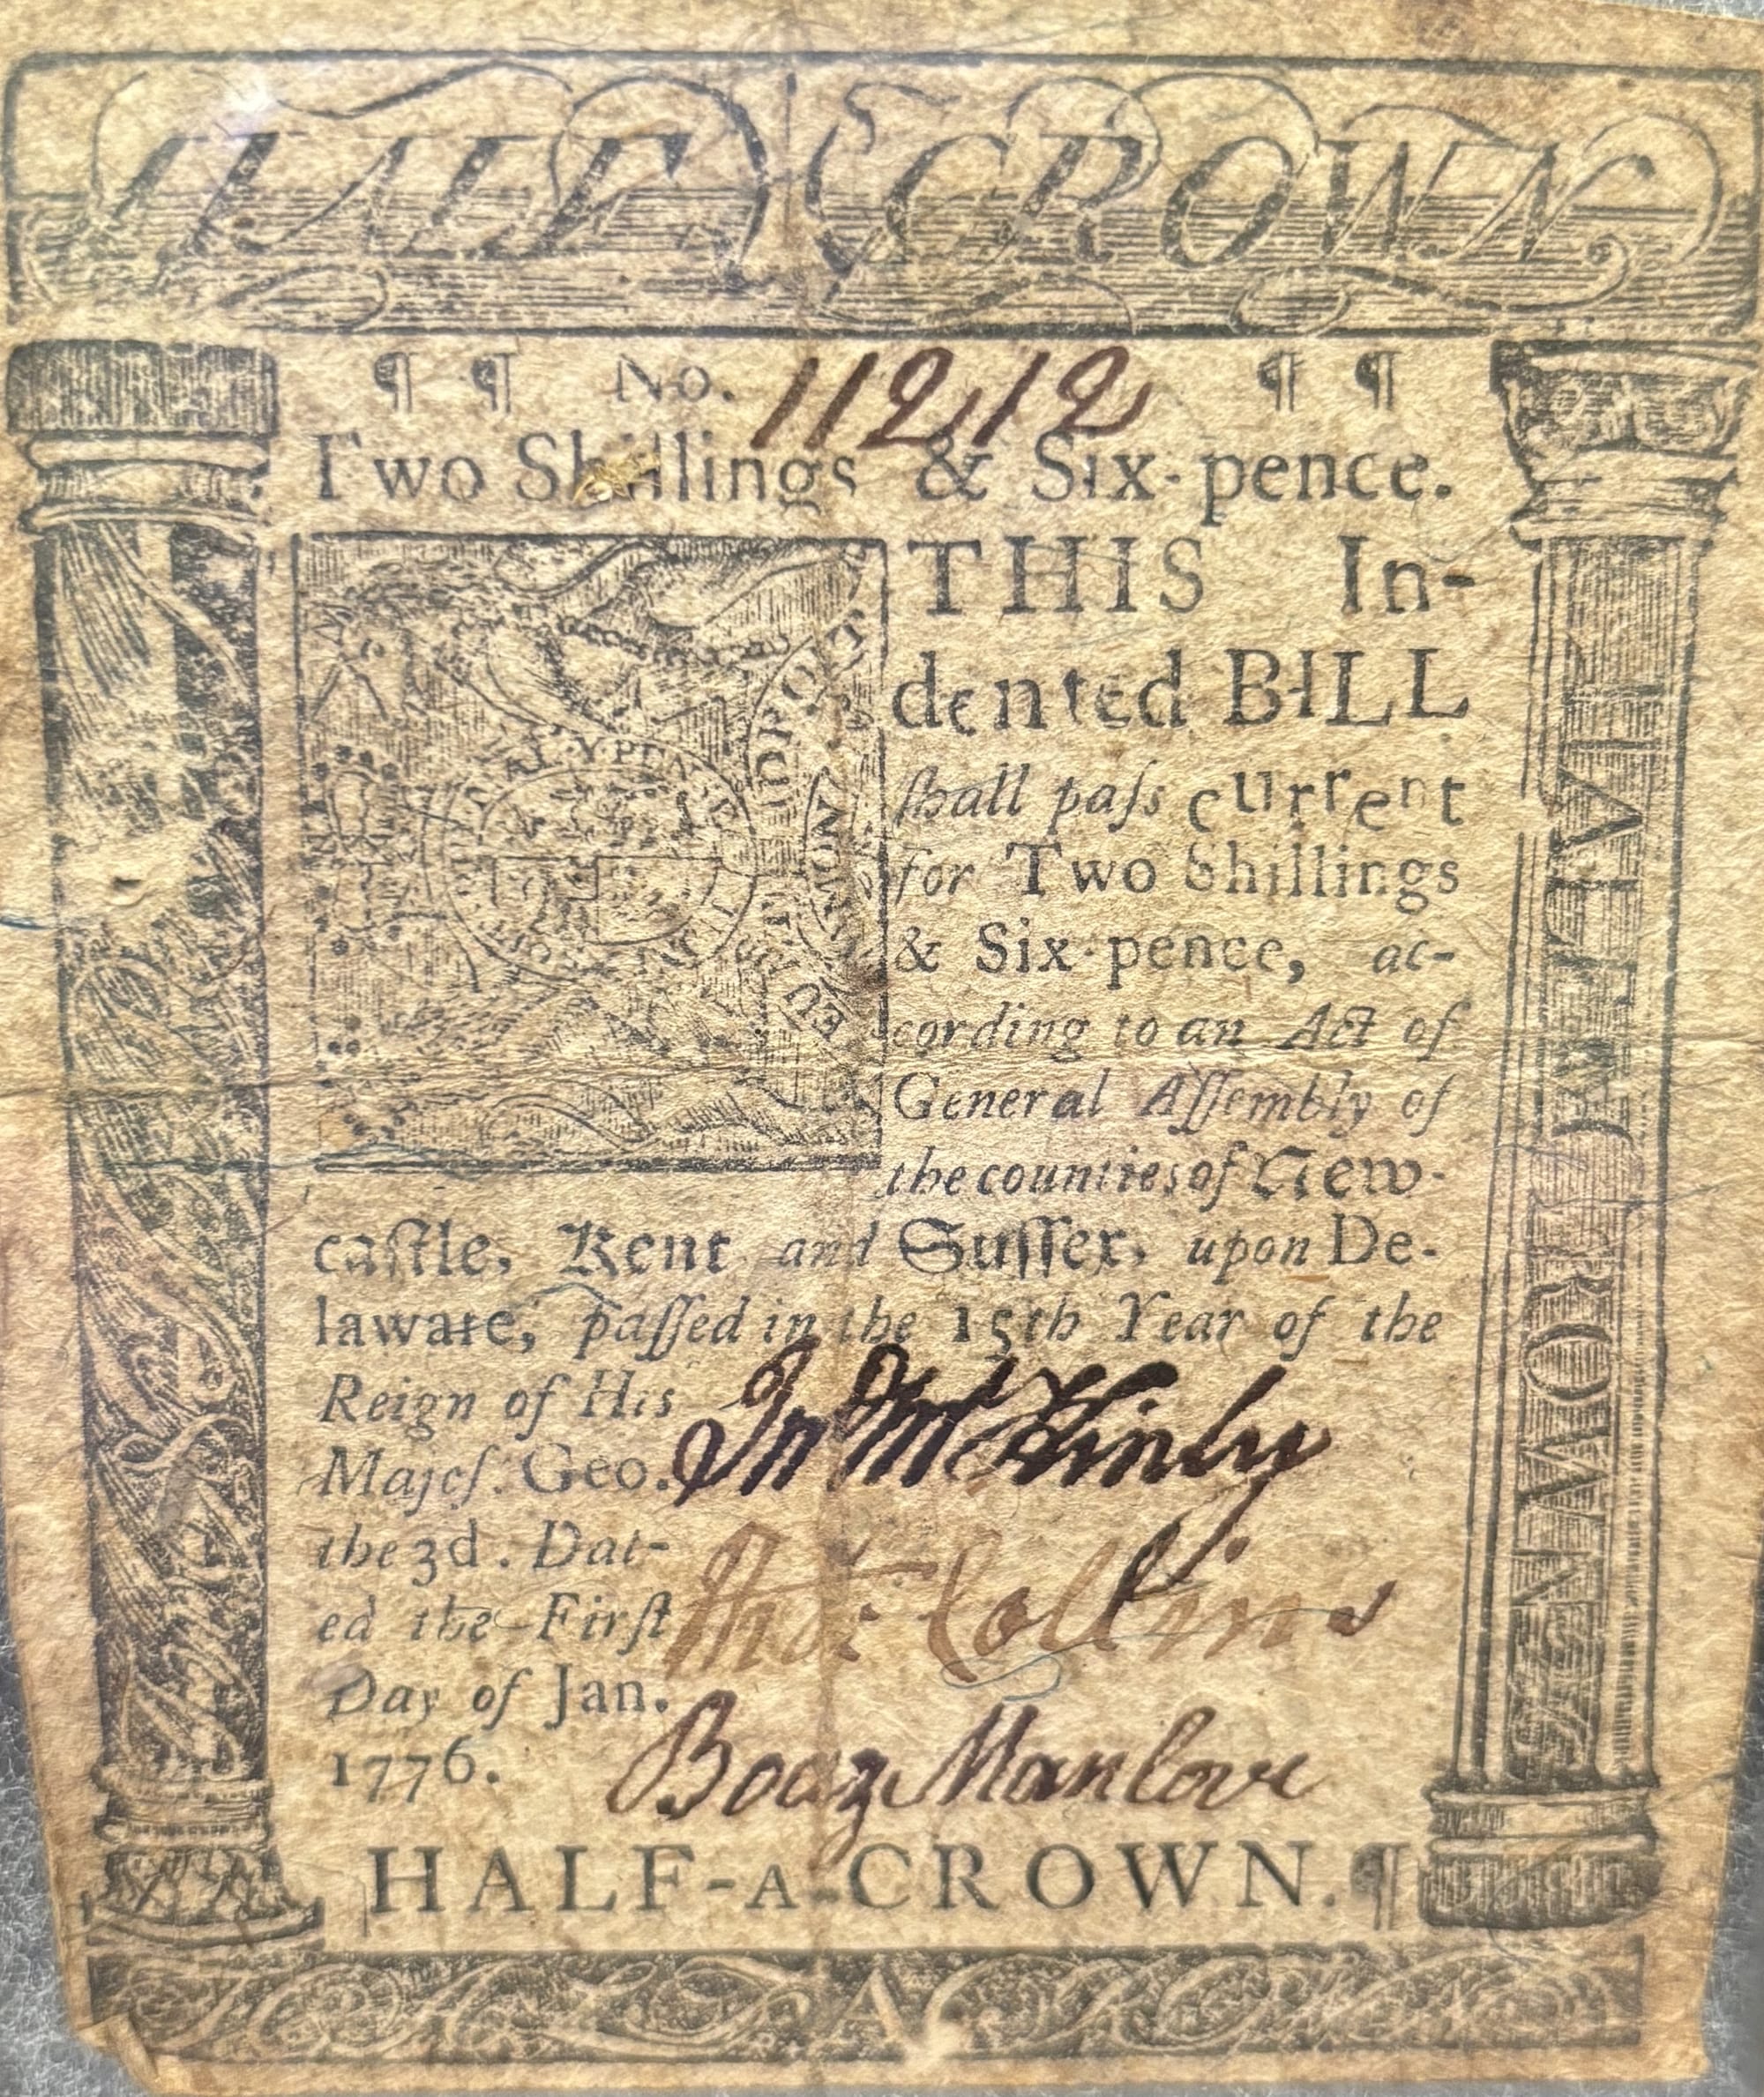 HALF CROWN
¶ ¶ No. 11212 ¶ ¶
Two Shillings & Six-pence.
THIS In-
dented BILL
ſhall paſs current
for Two Shillings
& Six-pence, ac-
cording to an Act of
General Aſſembly of
the counties of New-
caſtle, Kent and Suſſex, upon De-
laware, paſſed in the 15th Year of the
Reign of His
Majeſ. Geo.
the 3d. Dat-
ed the Firſt
Day of Jan.
1776.
Jno McKinly
Thos Collins
Boaz Manlove
HALF-A-CROWN.¶
HALF A CROWN
HONI SOIT QUI MAL Y PENSE